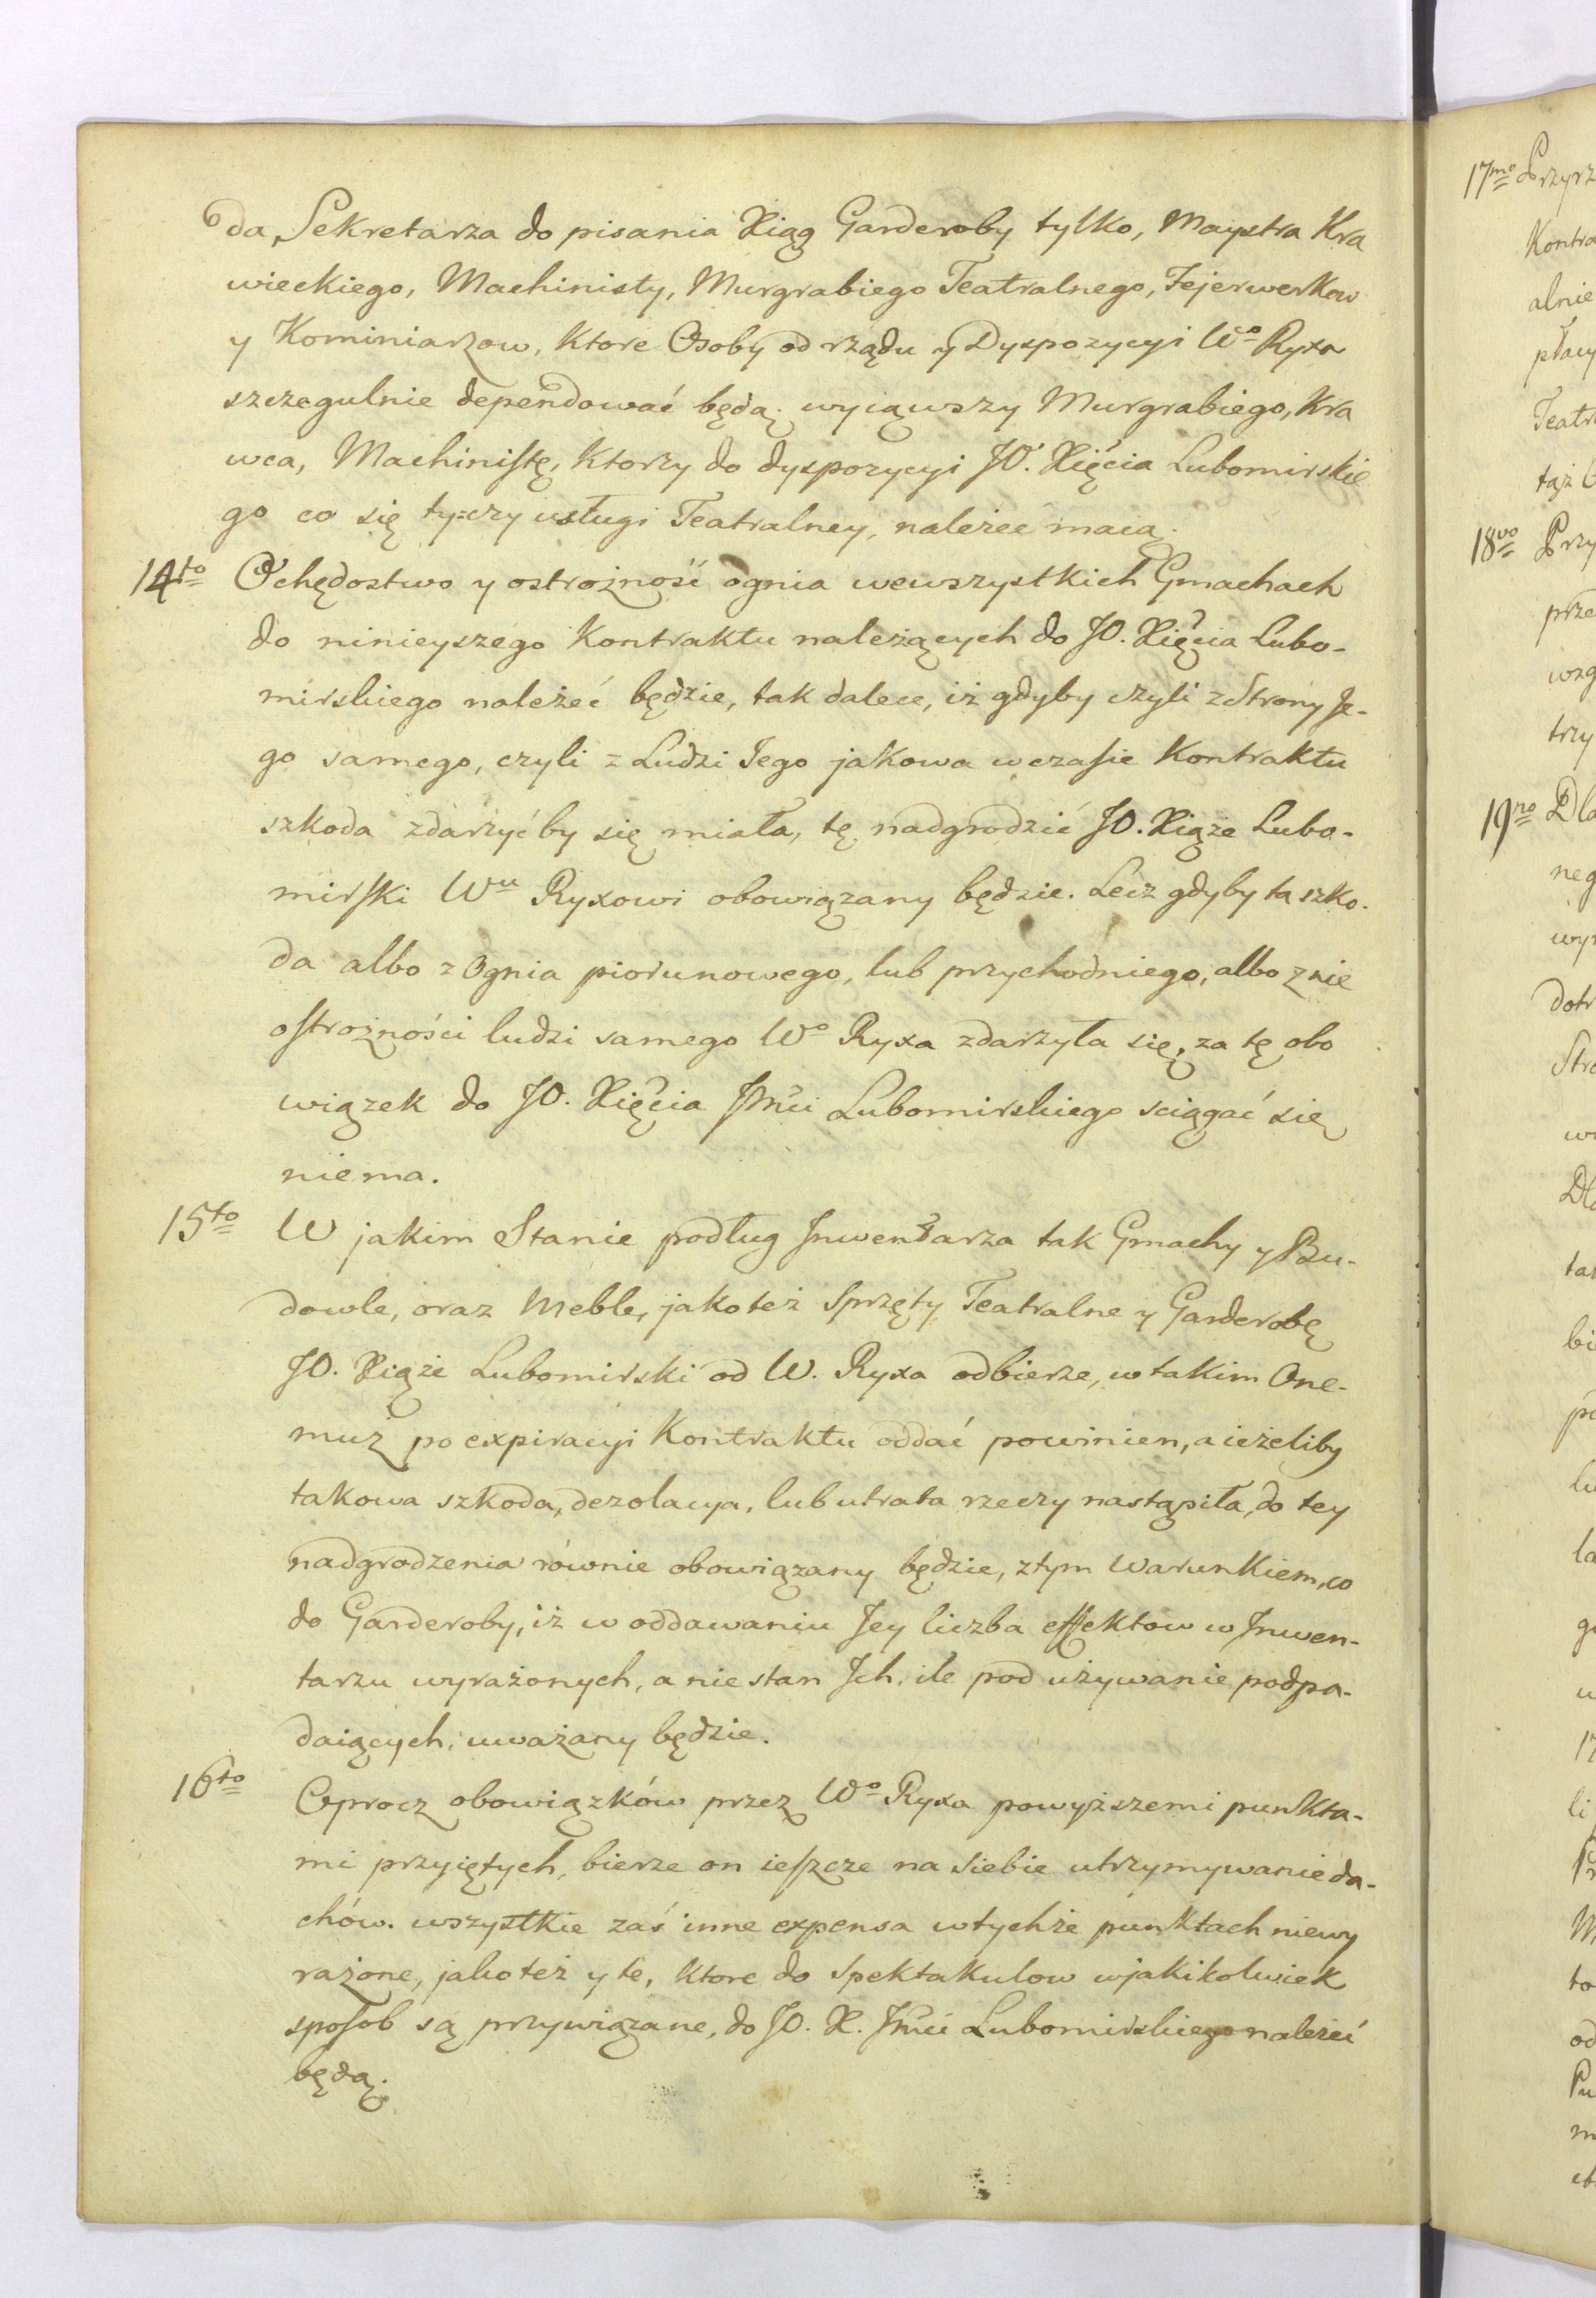 da, Sekretarza do pisania Xiąg Garderoby tylko, Maystra Kra
wieckiego, Machinisty, Murgrabiego Teatralnego, Fejerwerkow
y Kominiarzow, Ktore Osoby od rządu y Dyspozycyi Wo Ryxa
szczegulnie dependować będą. wyiąwszy Murgrabiego, Kra
wca, Machinistę, Ktorzy do dyspozycyi JO. Xięcia Lubomirskie
go co się tyczy usługi Teatralney, należeć maią.
14to Ochędostwo y ostrożność ognia wewszystkich Gmachach
do ninieyszego Kontraktu należących do JO. Xięcia Lubo-
mirskiego należeć będzie, tak dalece, iż gdyby czyli z Strony Je-
go samego, czyli z Ludzi Jego jakowa wczasie Kontraktu
szkoda zdarzyćby się miała, tę nadgrodzić JO. Xiąże Lubo-
mirski Wu Ryxowi obowiązany będzie. Lecz gdyby ta szko-
da albo z Ognia piorunowego, lub przychodniego, albo z nie
ostrożności ludzi samego Wo Ryxa zdarzyła się, za tę obo
wiązek do JO. Xięcia Jmci Lubomirskiego sciągać się
niema.
15to W jakim Stanie podług Inwentarza tak Gmachy y Bu-
dowle, oraz Meble, jakoteż Sprzęty Teatralne y Garderobę
JO. Xiąże Lubomirski od W. Ryxa odbierze, w takim One-
muż po expiracyi Kontraktu oddać powinien, a ieżeliby
takowa szkoda, dezolacya, lub utrata rzeczy nastąpiła, do tey
nadgrodzenia równie obowiązany będzie, ztym Warunkiem, co
do Garderoby, iż w oddawaniu Jey liczba effektow w Inwen-
tarzu wyrażonych, a nie stan Ich, ile pod używanie podpa-
daiących, uważany będzie.
16to Oprocz obowiązków przez Wo Ryxa powyższemi punkta-
mi przyiętych, bierze on ieszcze na siebie utrzymywanie da-
chów. wszystkie zaś inne expensa wtychże punktach niewy
rażone, jakoteż y te, Ktore do Spektakulow wjakikolwiek
sposob są przywiązane, do JO. X. Jmci Lubomirskiego należeć
będą.
17mo Przyrz
Kontra
alnie
płacy
Teatr
taż
18vo Przy
prze
wzg
trzy
19no Dla
neg
wyr
dotr
Stro